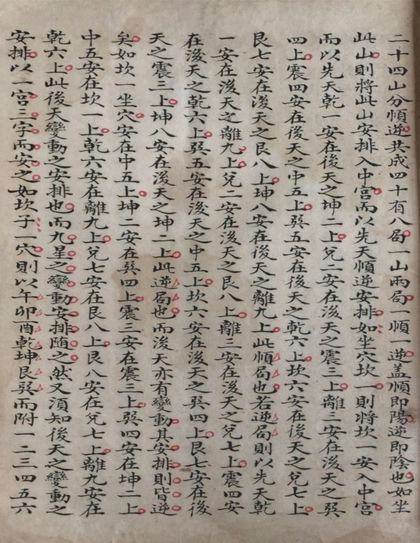 二十四山分順逆共成四十有八局 山兩局一順 逆蓋順即陽逆即陰也如坐
此山則將此山安排入中宮而以先天順逆安排如坐穴坎一則將坎 安入中宮
而以先天乾一安在後天之坤二上兌二安在後天之震三上離三安在後天之巽
四上震四安在後天之中五上巽五安在後天之乾六上坎六安在後天之兌七上
艮七安在後天之艮八上坤八安在後天之離九上此順局也若逆局則以先天乾
一安在後天之離九上兌二安在後天之艮八上離三安在後天之兌七上震四安
在後天之乾六上巽五安在後天之中五上坎六安在後天之巽四上艮七安在後
天之震三上坤八安在後天之坤二上此逆局也而後天亦有變動其安排則皆逆
矣如坎一坐穴安在中五上坤二安在巽四上震三安在震三上巽四安在坤二上
中五安在坎一上乾六安在離九上兌七安在艮八上艮八安在兌七上離九安在
乾六上此後天變動之安排也而九星之變動安排隨之然又須知後天之變動之
安排以一宮三字而安之如坎子 穴則以午卯酉乾坤艮巽而附一二三四五六